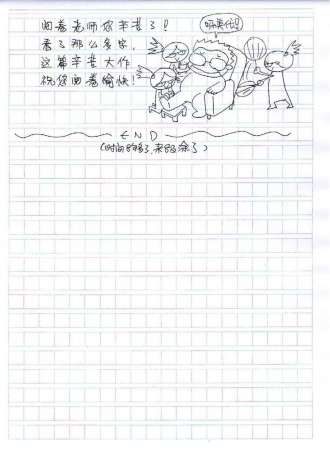 阅卷老师您辛苦了!
看了那么多字,
这篇辛苦大作
祝您阅卷愉快!
END
(时间 了,来 涂了)